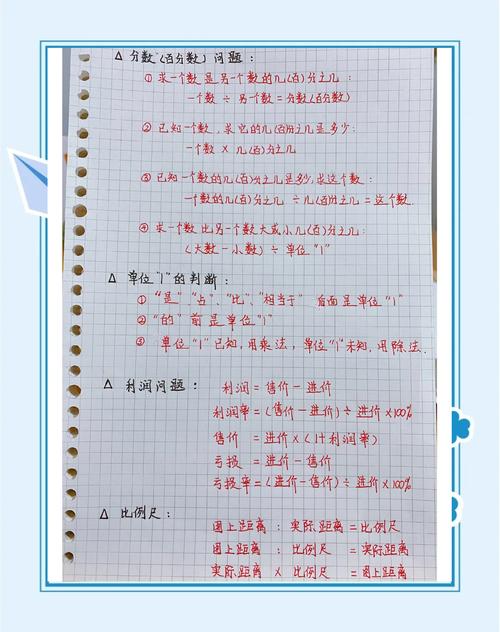 △ 分数(百分数)问题:
① 求一个数是另一个数的几(百)分之几:
一个数 ÷ 另一个数 = 分数(百分数)
② 已知一个数,求它的几(百)分之几是多少:
一个数 × 几(百)分之几
③ 已知一个数的几(百)分之几是多少,求这个数:
一个数的几(百)分之几 ÷ 几(百)分之几 = 这个数.
④ 求一个数比另一个数大或小几(百)分之几:
(大数 - 小数) ÷ 单位"1"
△ 单位"1"的判断:
① "是" "占"、"比"、"相当于" 后面是单位"1"
② "的"前是单位"1"
③ 单位"1"已知,用乘法,单位"1"未知,用除法.
△ 利润问题: 利润 = 售价 - 进价
利润率 = (售价 - 进价) ÷ 进价 × 100%
售价 = 进价 × (1+利润率)
亏损 = 进价 - 售价
亏损率 = (进价 - 售价) ÷ 进价 × 100%
△ 比例尺:
图上距离 : 实际距离 = 比例尺
图上距离 : 比例尺 = 实际距离
实际距离 × 比例尺 = 图上距离